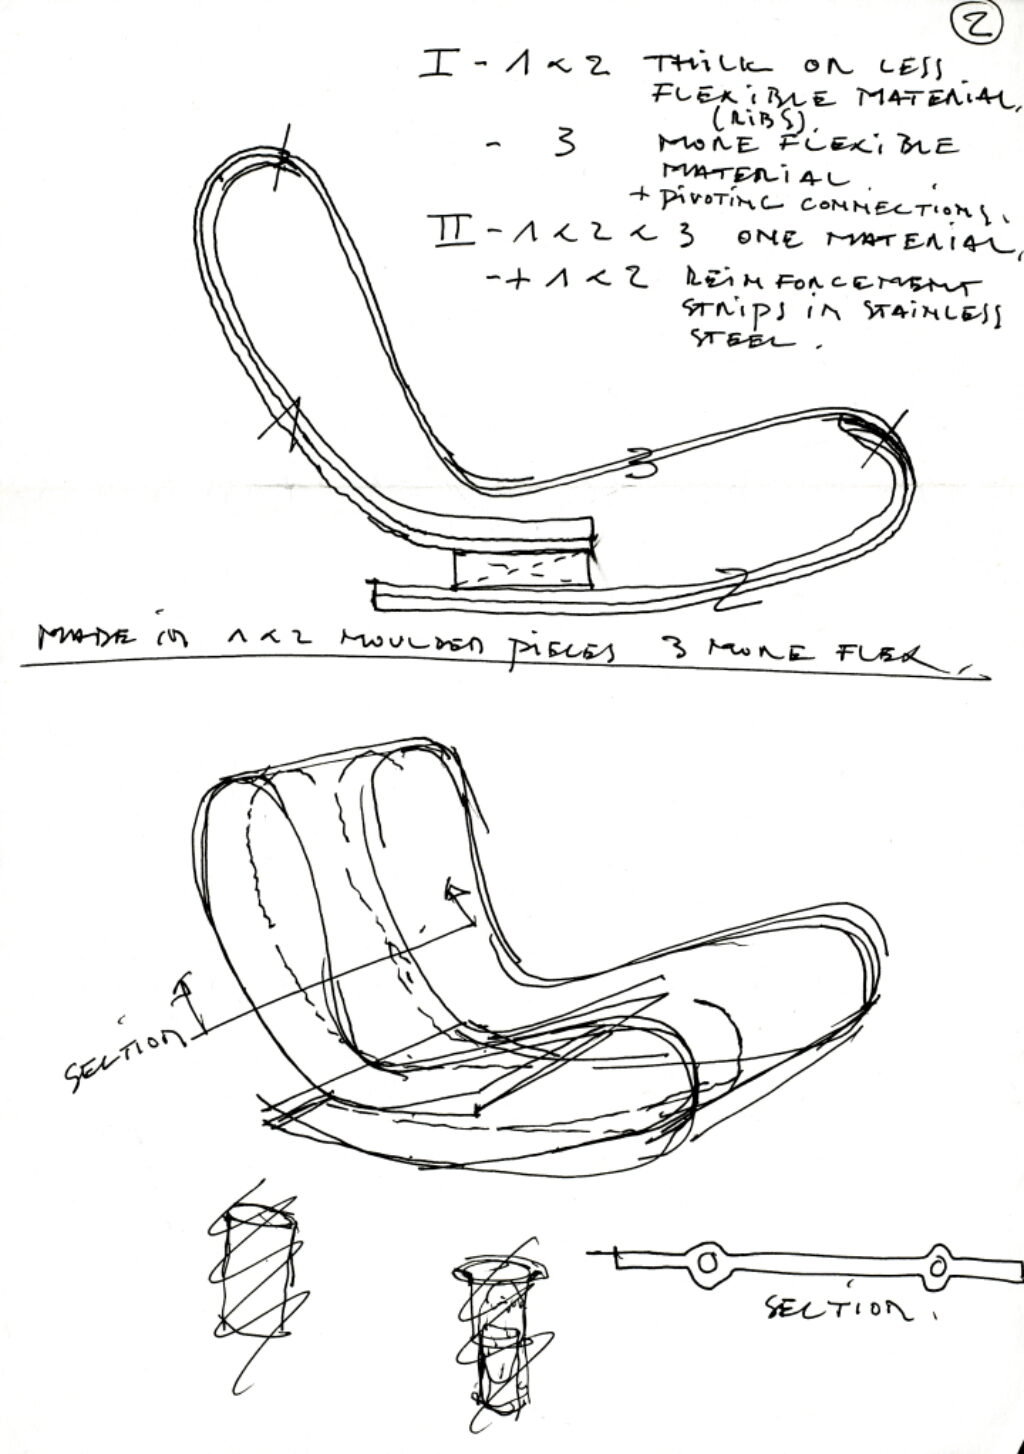 2
I - 1 < 2 THICK OR LESS
FLEXIBLE MATERIAL,
(RIBS).
- 3 MORE FLEXIBLE
MATERIAL
+ PIVOTING CONNECTIONS.
II - 1 < 2 < 3 ONE MATERIAL,
- + 1 < 2 REINFORCEMENT
STRIPS IN STAINLESS
STEEL.
1
3
2
MADE IN 1 < 2 MOULDED PIECES 3 MORE FLEX.
SECTION
SECTION.